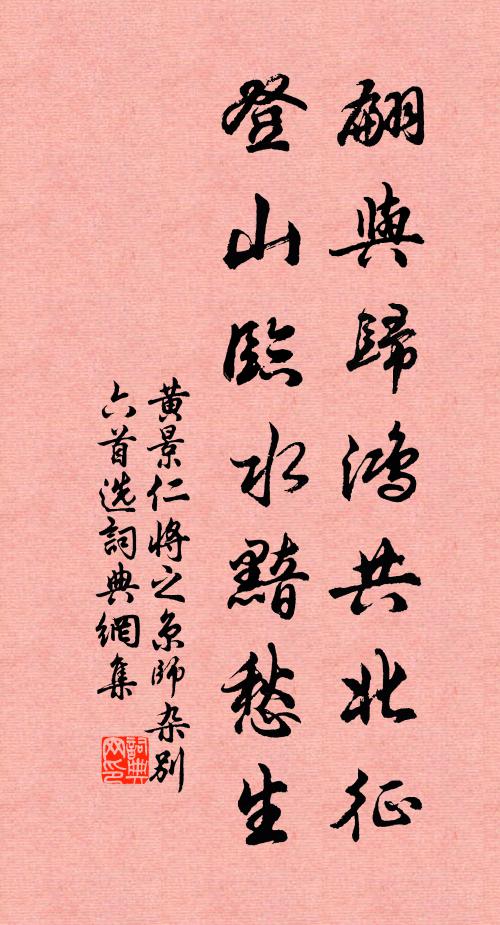 翩與歸鴻共北征
登山臨水黯愁生
黄景仁將之京師杂别
六首选詞典網集
詞典网印